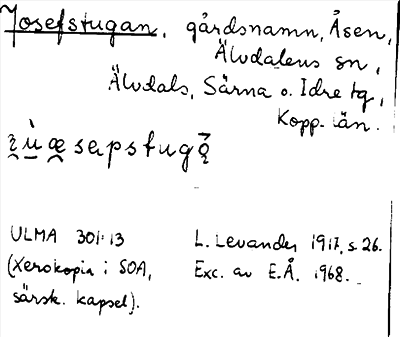 Josefstugan, gårdsnamn, Åsen,
Älvdalens sn,
Älvdals, Särna o. Idre tg,
Kopp. län.
ULMA 301:13
(Xerokopia i SOA,
särsk. kapsel).
L. Levander 1917, s. 26.
Exc. av E.Å. 1968.